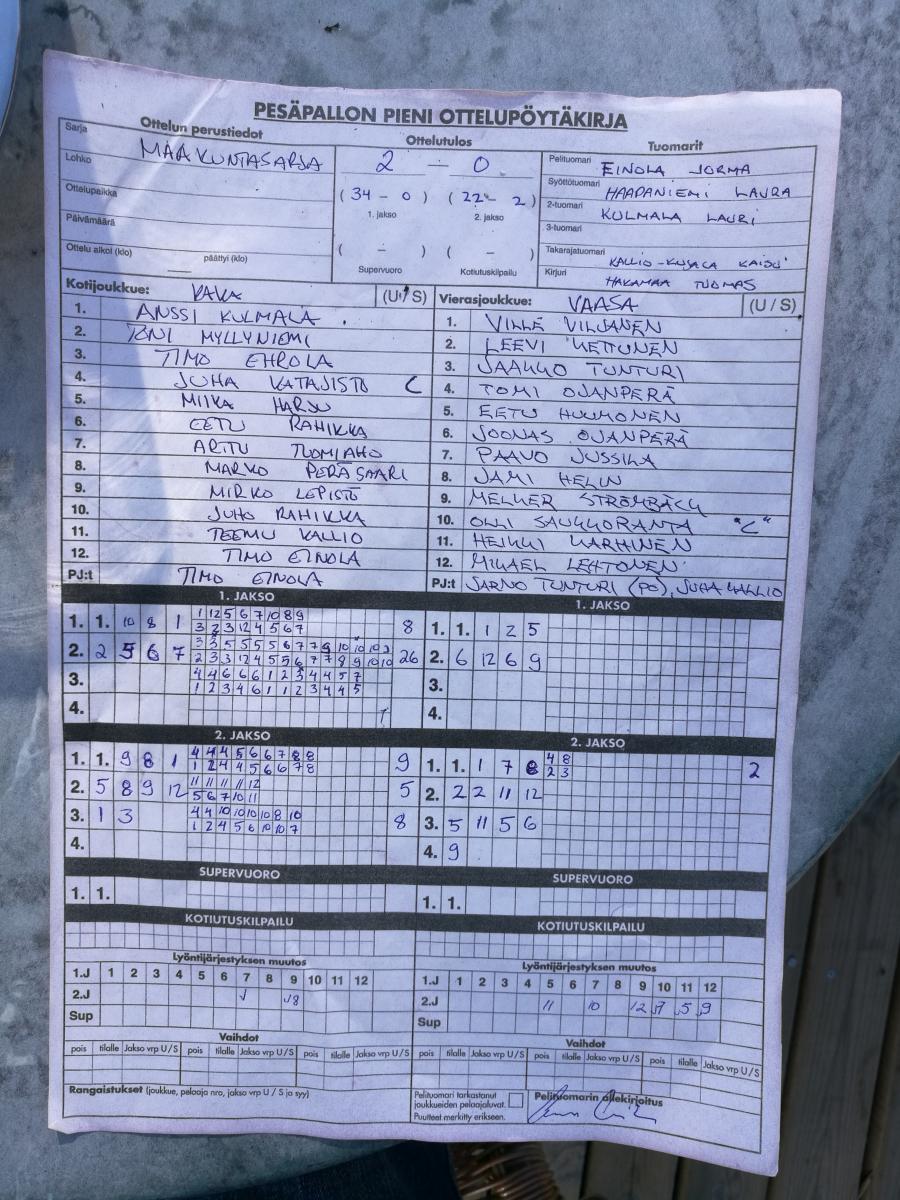 PESÄPALLON PIENI OTTELUPÖYTÄKIRJA
Ottelun perustiedot Ottelutulos Tuomarit
Sarja MAAKUNTASARJA 2 – 0 Pelituomari EINOLA JORMA
Lohko (34 – 0) (22 – 2) Syöttötuomari HAAPANIEMI LAURA
Ottelupaikka 1. jakso 2. jakso 2-tuomari KULMALA LAURI
Päivämäärä 3-tuomari
Ottelu alkoi (klo) päättyi (klo) ( – ) ( – ) Takarajatuomari KALLIO-
Supervuoro Kotiutuskilpailu Kirjuri HAKAMAA TUOMAS
Kotijoukkue: (U / S) Vierasjoukkue: VAASA (U / S)
1. ANSSI KULMALA 1. VILLE VILJANEN
2. TONI MYLLYNIEMI 2. LEEVI KETTUNEN
3. TIMO EHROLA 3. JAAKKO TUNTURI
4. JUHA KATAJISTO C 4. TOMI OJANPERÄ
5. MIIKA HARJU 5. EETU HUUHONEN
6. EETU RAHIKKA 6. JOONAS OJANPERÄ
7. ARTTU TUOMIAHO 7. PAAVO JUSSILA
8. MARKO PERÄSAARI 8. JAMI HELIN
9. MIRKO LEPISTÖ 9. MELKER STRÖMBÄCK
10. JUHO RAHIKKA 10. OLLI SAUKKORANTA "C"
11. TEEMU KALLIO 11. HEIKKI KARHINEN
12. TIMO EINOLA 12. MIKAEL LEHTONEN
PJ:t TIMO EINOLA PJ:t JARNO TUNTURI (PG), JUHA KALLIO
1. JAKSO 1. JAKSO
1. 1. 10 8 1 8 1. 1. 1 2 5
1 12 5 6 7 10 8 9
3 2 3 12 4 5 6 7
2. 2 5 6 7 26 2. 6 12 6 9
3. 4 4 6 6 6 1 2 3 4 4 5 7 3.
1 2 3 4 6 1 1 2 3 4 4 5
4. 4.
2. JAKSO 2. JAKSO
1. 1. 9 8 1 9 1. 1. 1 7 8 2
4 4 4 5 6 6 7 8 8 4 8
1 2 4 4 5 6 6 7 8 2 3
2. 5 8 9 12 5 2. 2 2 11 12
11 11 11 11 12
5 6 7 10 11
3. 1 3 8 3. 5 11 5 6
4 4 10 10 10 10 8 10
1 2 4 5 6 10 10 7
4. 4. 9
SUPERVUORO SUPERVUORO
1. 1. 1. 1.
KOTIUTUSKILPAILU KOTIUTUSKILPAILU
Lyöntijärjestyksen muutos Lyöntijärjestyksen muutos
1.J 1 2 3 4 5 6 7 8 9 10 11 12 1.J 1 2 3 4 5 6 7 8 9 10 11 12
2.J 2.J 11 10 12 5 9
Sup Sup
Vaihdot Vaihdot
pois tilalle Jakso vrp U/S pois tilalle Jakso vrp U/S pois tilalle Jakso vrp U/S pois tilalle Jakso vrp U/S pois tilalle Jakso vrp U/S pois tilalle Jakso vrp U/S
Rangaistukset (joukkue, pelaaja nro, jakso vrp U / S ja syy) Pelituomari tarkastanut joukkueiden pelaajaluvat. Puutteet merkitty erikseen. Pelituomarin allekirjoitus